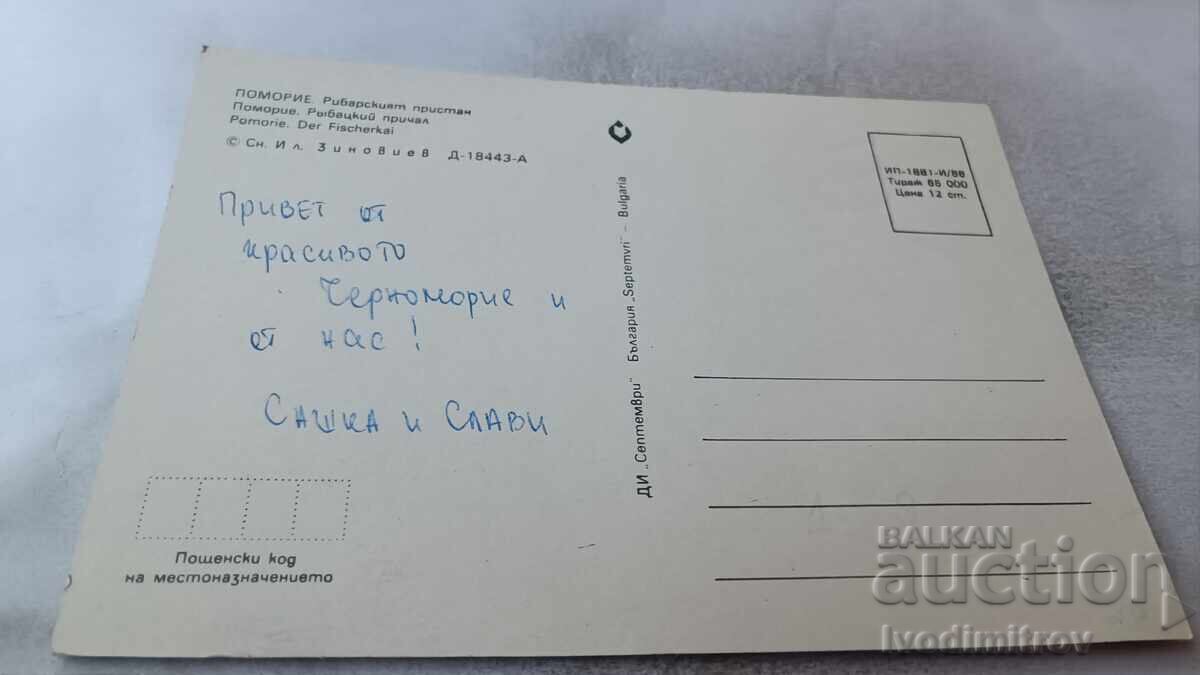 ПОМОРИЕ. Рибарският пристан
Поморие. Рыбацкий причал
Pomorie. Der Fischerkai
© Сн. Ил. Зиновиев Д-18443-А
Привет от
красивото
Черноморие и
от нас!
Сашка и Слави
Пощенски код
на местоназначението
ДИ „Септември" България „Septemvri" – Bulgaria
ИП-1881-И/88
Тираж 65 000
Цена 12 ст.
BALKAN
auction
Ivodimitrov